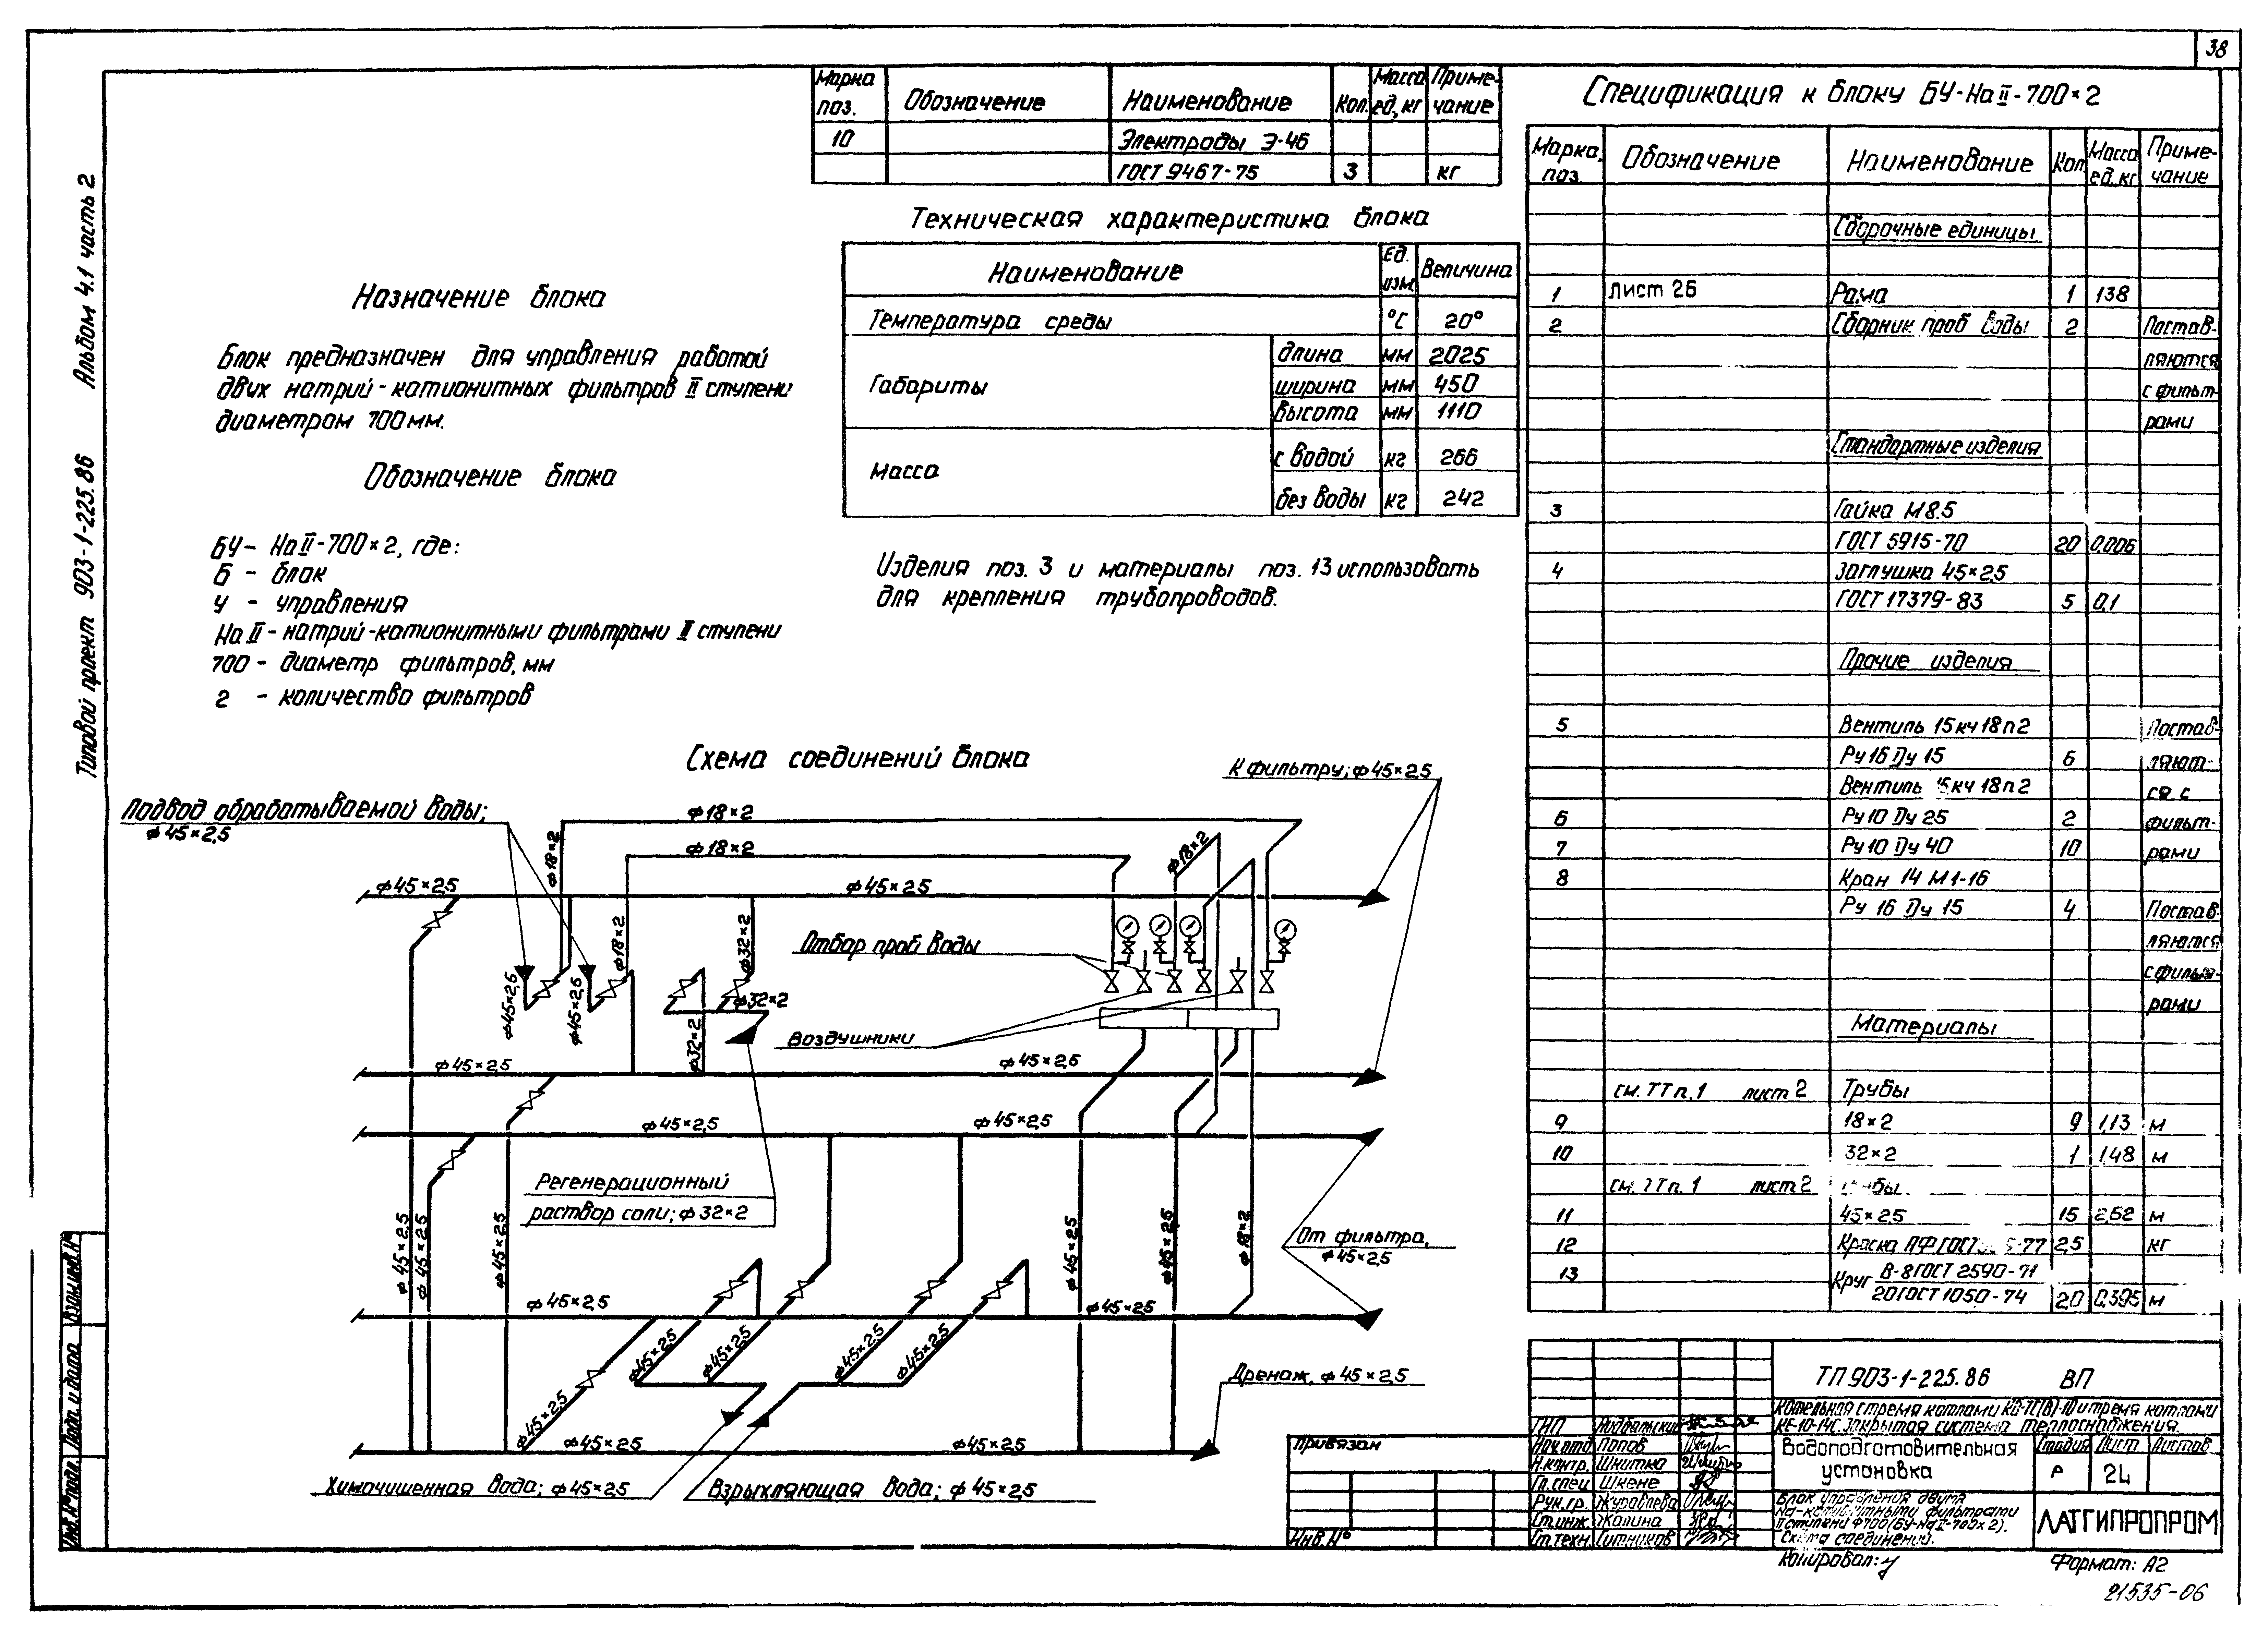 38
Альбом 4.1 часть 2
Типовой проект 903-1-225.86
Марка поз. Обозначение Наименование Кол. Масса ед, кг Приме-чание
10 Электроды Э-46
ГОСТ 9467-75 3 кг
Техническая характеристика блока
Наименование Ед. изм. Величина
Температура среды °С 20°
Габариты длина мм 2025
ширина мм 450
высота мм 1110
Масса с водой кг 266
без воды кг 242
Назначение блока
Блок предназначен для управления работой
двих натрий-катионитных фильтров II ступени
диаметром 700 мм.
Обозначение блока
БУ- На II-700×2, где:
Б - блок
У - управления
На II - натрий-катионитными фильтрами II ступени
700 - диаметр фильтров, мм
2 - количество фильтров
Изделия поз. 3 и материалы поз. 13 использовать
для крепления трубопроводов.
Спецификация к блоку БУ-На II-700×2
Марка, поз. Обозначение Наименование Кол. Масса ед. кг Приме-чание
Сборочные единицы
1 Лист 26 Рама 1 138
2 Сборник проб воды 2 Постав-
ляются
с фильт-
рами
Стандартные изделия
3 Гайка М8.5
ГОСТ 5915-70 20 0,006
4 Заглушка 45×2,5
ГОСТ 17379-83 5 0,1
Прочие изделия
5 Вентиль 15кч 18п2 Постав-
Ру 16 Ду 15 6 ляют-
Вентиль 15кч 18п2 ся с
6 Ру 10 Ду 25 2 фильт-
7 Ру 10 Ду 40 10 рами
8 Кран 14 М1-16
Ру 16 Ду 15 4 Постав-
ляются
с фильт-
рами
Материалы
см. ТТ п. 1 лист 2 Трубы
9 18×2 9 1,13 м
10 32×2 1 1,48 м
см. ТТ п. 1 лист 2
11 45×2,5 15 2,62 м
12 Краска ПФ ГОСТ -77 2,5 кг
13 Круг В-8 ГОСТ 2590-71
20 ГОСТ 1050-74 20 0,395 м
Схема соединений блока
К фильтру; ф 45×2,5
Подвод обрабатываемой воды;
ф 45×2,5
ф 18×2
ф 18×2
ф 18×2
ф 18×2
ф 45×2,5
ф 45×2,5
ф 18×2
ф 32×2
Отбор проб воды
ф 45×2,5
ф 45×2,5
ф 32×2
ф 32×2
Воздушники
ф 45×2,5
ф 45×2,5
ф 45×2,5
ф 45×2,5
Регенерационный
раствор соли; ф 32×2
ф 45×2,5
ф 45×2,5
ф 45×2,5
ф 45×2,5
ф 45×2,5
ф 18×2
От фильтра,
ф 45×2,5
ф 45×2,5
ф 45×2,5
ф 45×2,5
ф 45×2,5
ф 45×2,5
ф 45×2,5
ф 45×2,5
Дренаж, ф 45×2,5
ф 45×2,5
ф 45×2,5
Химочишенная вода; ф 45×2,5
Взрыхляющая вода; ф 45×2,5
Инв. № подл. Подп. и дата Взам.инв.№
Привязан
Инв. №
ТП 903-1-225.86 ВП
КЕ-10-14С. Закрытая система теплоснабжения.
ГИП
Нач.отд. Попов
Н.контр. Шнитка
Гл.спец. Шкене
Рук.гр. Журавлева
Ст.инж. Жолина
Ст.техн. Ситников
Водоподготовительная
установка
Стадия Лист Листов
Р 24
Блок управления двумя
Na-катионитными фильтрами
II ступени ф700 (БУ-На II-700×2).
Схема соединений.
ЛАТГИПРОПРОМ
Копировал:
Формат: А2
21535-06